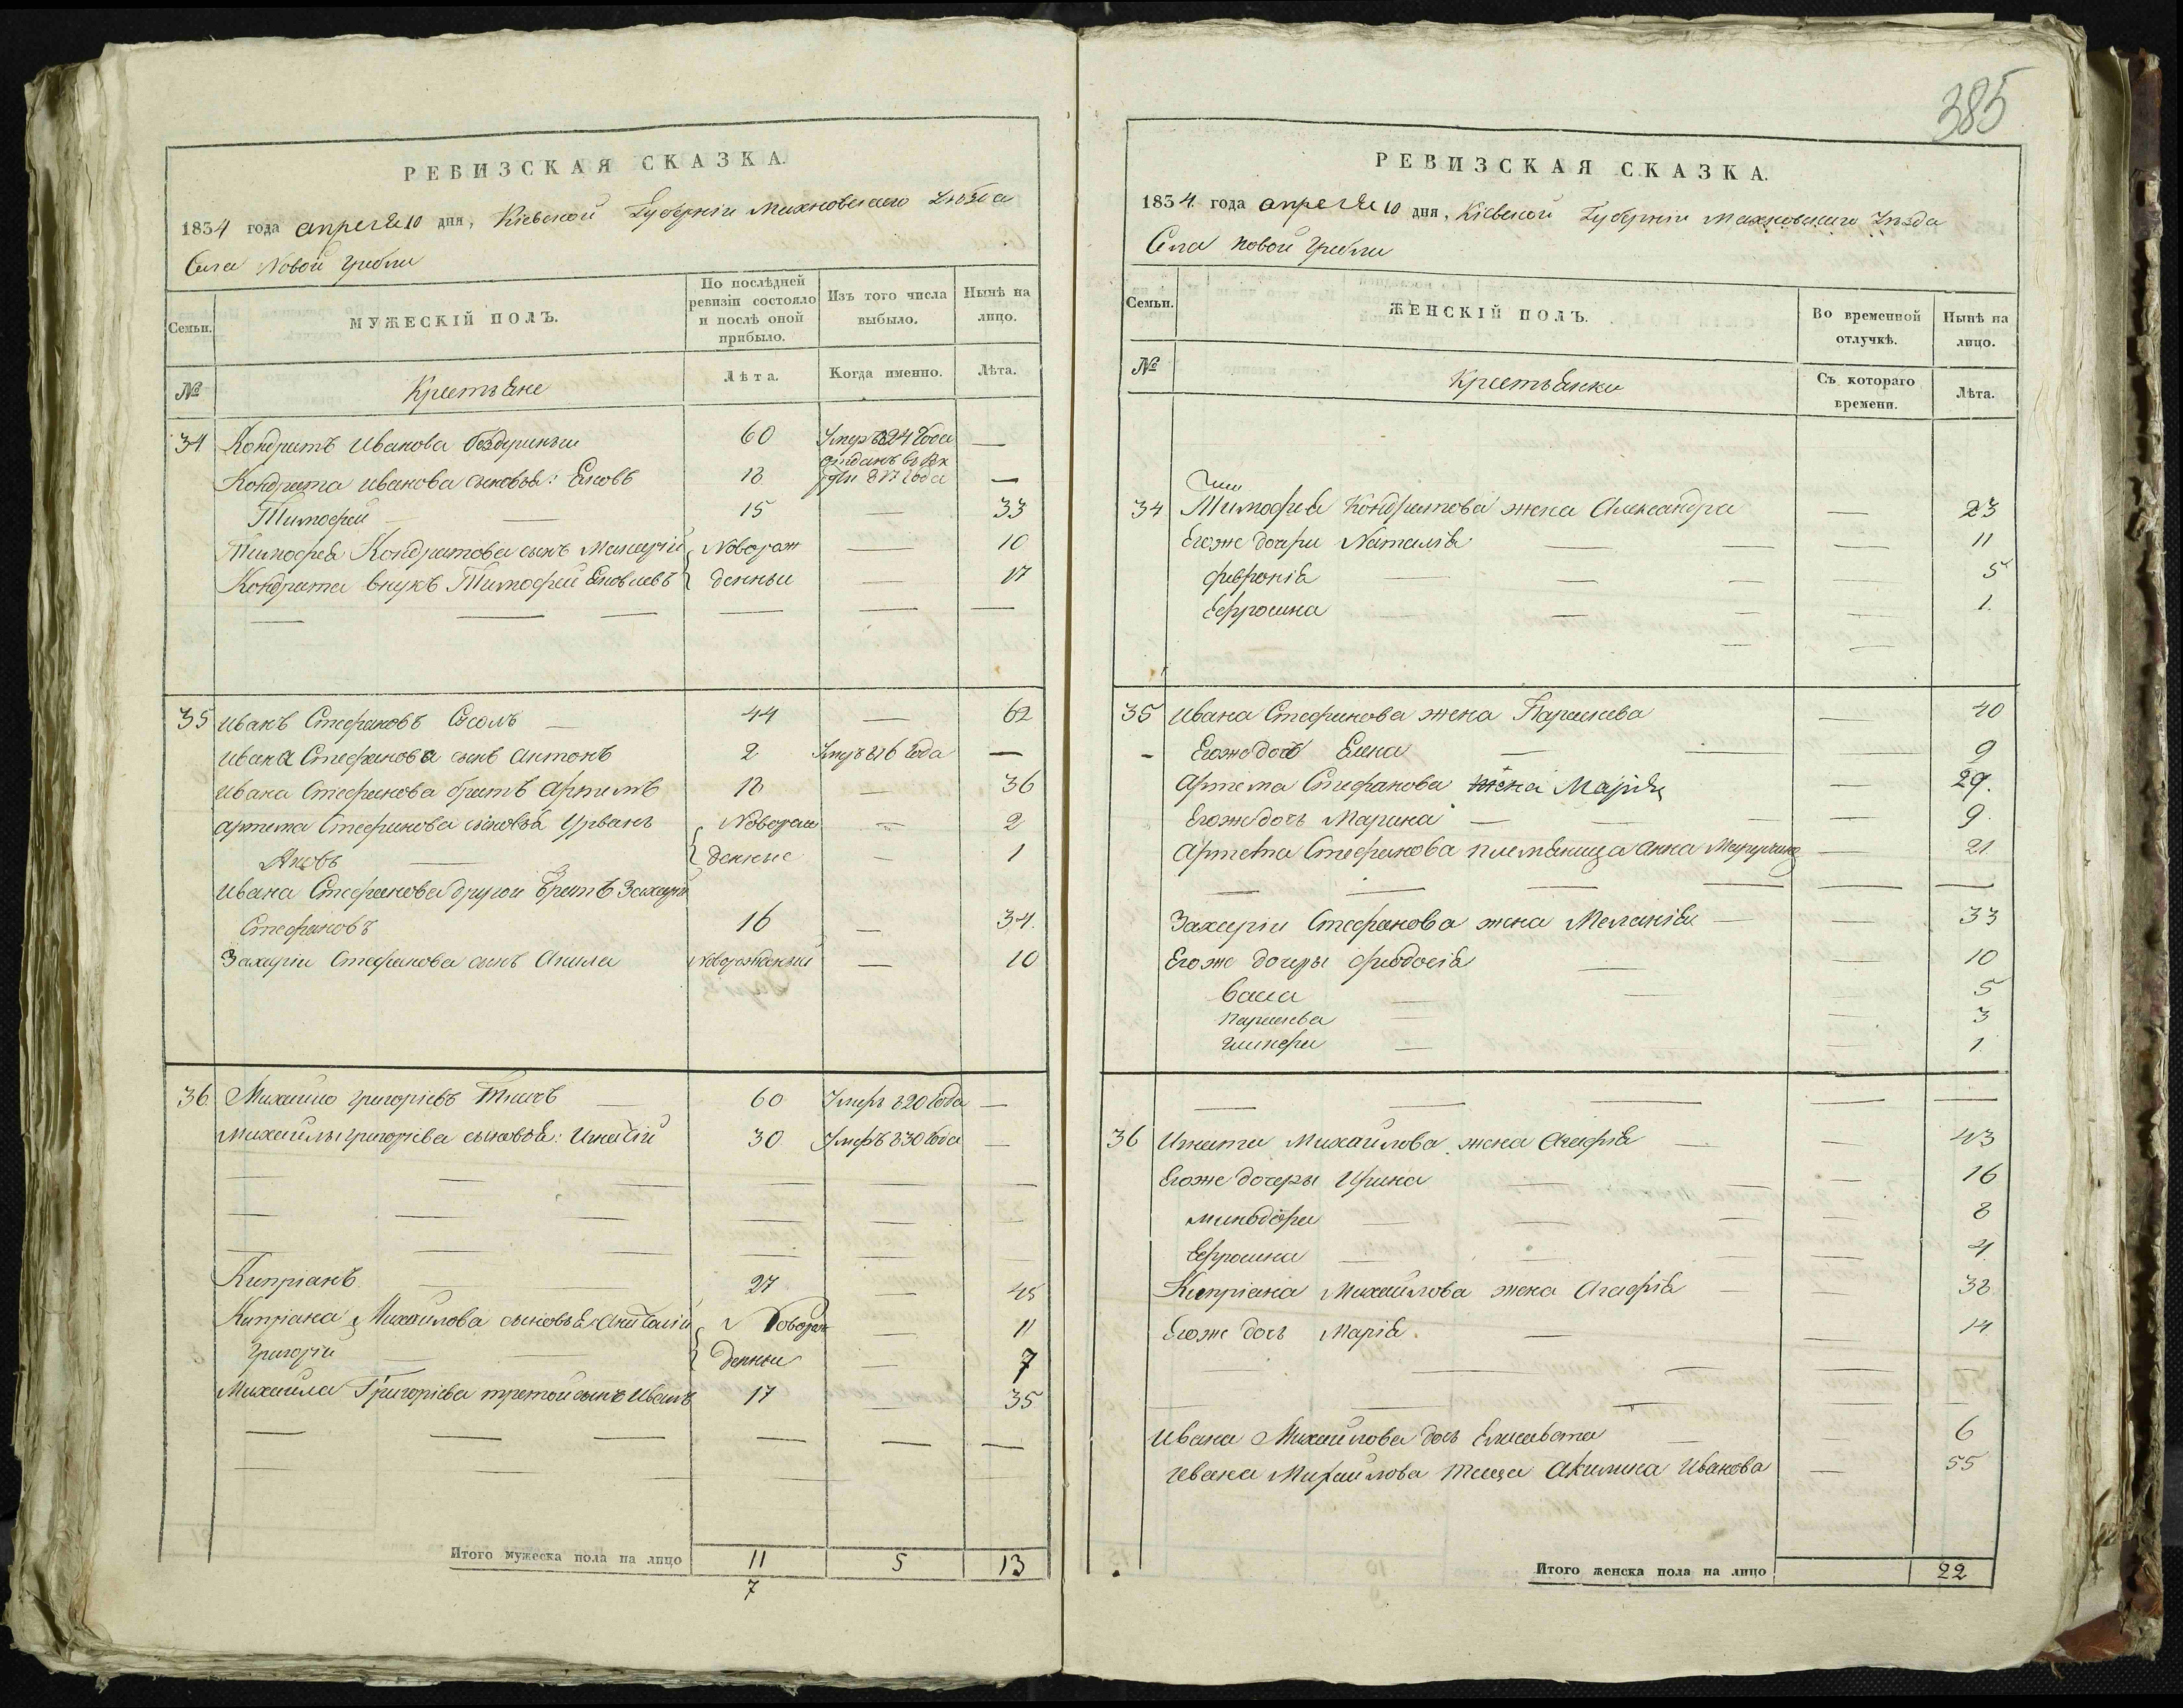 385
РЕВИЗСКАЯ СКАЗКА.
1834 года апреля 10 дня, Кіевской Губерніи Махновскаго Уѣзда
Села Новой Гребли
Семьи.
МУЖЕСКІЙ ПОЛЪ.
По послѣдней ревизіи состояло и послѣ оной прибыло.
Изъ того числа выбыло.
Нынѣ на лицо.
№
Крестьяне
Лѣта.
Когда именно.
Лѣта.
34 Кондратъ Иванова 60 Умеръ 824 года —
Кондрата Иванова сыновья: Яковъ 18 отданъ въ рек 817 года —
Тимофей — — 15 — 33
Тимофея Кондратова сынъ Макарій Новорож — 10
Кондрата внукъ Тимофей Яковлевъ денныи — 17
35 Иванъ Стефановъ 44 — 62
Ивана Стефанова сынъ Антонъ 2 Умеръ 816 года —
Ивана Стефанова братъ Артемъ 18 — 36
Артема Стефанова сыновья Урванъ Новорож — 2
Яковъ — денные — 1
Ивана Стефанова другой братъ Захарій
Стефановъ 16 — 34.
Захарія Стефанова сынъ Акила Новорожденный — 10
36. Михайло Григоріевъ Ткачъ — 60 Умеръ 820 года —
Михайлы Григоріева сыновья: Игнатій 30 Умеръ 830 года —
Кипріанъ — — 27 — 45
Кипріана Михайлова сыновья: Новорож — 11
Григорій — — денныи — 7
Михайла Григоріева третой сынъ Иванъ 17 — 35
Итого мужеска пола на лицо 11 5 13
7
РЕВИЗСКАЯ СКАЗКА.
1834. года апреля 10 дня, Кіевской Губерніи Махновскаго Уѣзда
Села Новой Гребли
Семьи.
ЖЕНСКІЙ ПОЛЪ.
Во временной отлучкѣ.
Нынѣ на лицо.
№
Крестьянки
Съ котораго времени.
Лѣта.
34 Тимофея Кондратова жена Александра — 23
Егоже дочери Наталія — — — 11
Февронія — — — — 5
Ефросина — — — 1.
35 Ивана Стефанова жена Параскева — 40
Егоже дочь Елена — — — 9
Артема Стефанова жена Марія — 29.
Егоже дочь Марина — — — — 9.
Артема Стефанова племяница Анна — 21
Захарія Стефанова жена Меланія — — 33
Егоже дочеры Феодосія — — 10
Васса — — — 5
Параскева — — 3
Гликерія — — 1
36 Игнатія Михайлова жена Агафія — — 43
Егоже дочеры Ирина — — — 16
Минодора — — — — 8
Ефросина — — — — 4.
Кипріана Михайлова жена Агафія — — 38
Егоже дочь Марія. — — 14
Ивана Михайлова дочь Елисавета — — 6
Ивана Михайлова теща Акилина Иванова — 55
Итого женска пола на лицо 22